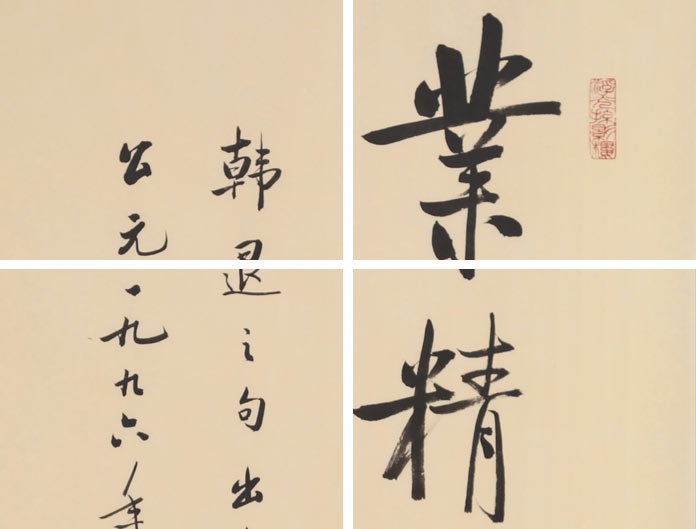 業精
韩退之句出
公元一九九六年